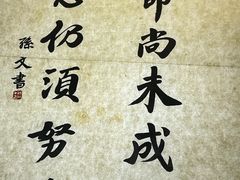 尚未成
仍須努
孫文書